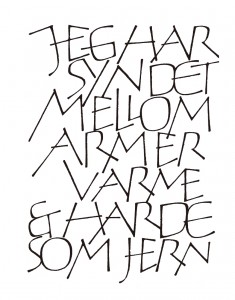 JEG HAR
SYNDET
MELLOM
ARMER
VARME
& HARDE
SOM JERN